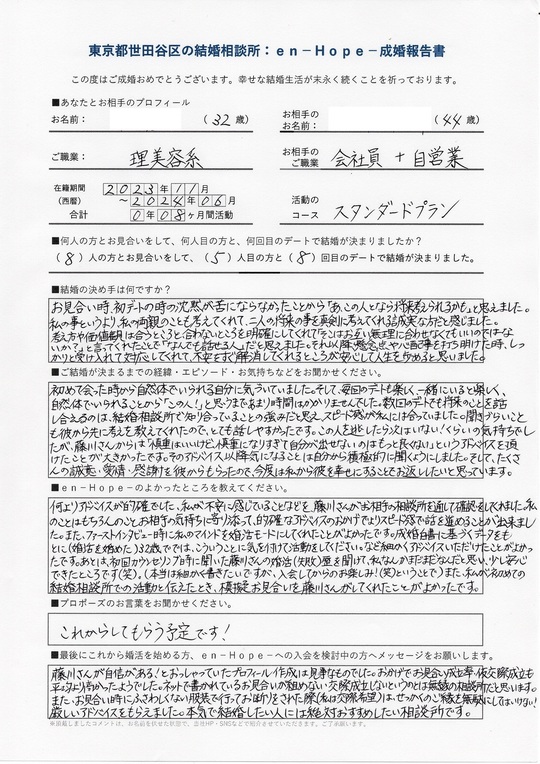 東京都世田谷区の結婚相談所：en－Hope－成婚報告書
この度はご成婚おめでとうございます。幸せな結婚生活が末永く続くことを祈っております。
■あなたとお相手のプロフィール
お名前： （32歳） お相手のお名前： （44歳）
ご職業： 理美容系 お相手のご職業 会社員＋自営業
在籍期間（西暦） 2023年11月～2024年06月 合計 0年08ヶ月間活動 活動のコース スタンダードプラン
■何人の方とお見合いをして、何人目の方と、何回目のデートで結婚が決まりましたか？
（8）人の方とお見合いをして、（5）人目の方と（8）回目のデートで結婚が決まりました。
■結婚の決め手は何ですか？
お見合い時、初デートの時の沈黙が苦にならなかったことから「あ、この人となら将来考えられるかも」と思えました。
私の事というより、私の両親のことも考えてくれて、二人の将来の事を真剣に考えてくれる誠実な方だと感じました。
考え方や価値観は合うところと合わないところを明確にしてくれて「そこはお互い無理に合わせなくてもいいのではな
いか？」と言ってくれて「なんでも話せる人」だと思えました。それ以降、懸念や心配事を打ち明けた時、しっ
かりと受け入れて対応してくれて、不安をすぐ解消してくれるところが安心して人生を歩めると思いました。
■ご結婚が決まるまでの経緯・エピソード・お気持ちなどをお聞かせください。
初めて会った時から自然体でいられる自分に気づいていました。そして、毎回のデートも楽しく、一緒にいると楽しく、
自然体でいられることから“この人！”と思うまであまり時間はかかりませんでした。数回のデートでも将来のことを話
し合えるのは、結婚相談所で知り合っていることの強みだと思えスピード感が私には合っていました。聞きづらいこと
も彼から先に考えを教えてくれたので、とても話しやすかったです。この人を逃したらえはいない！くらいの気持ちでし
たが、藤川さんからは“慎重はいいけど、慎重になりすぎて自分が出せないのはもっと良くない”というアドバイスを頂
けたことが大きかったです。そのアドバイス以降気になることは自分から積極的に聞くようにしました。そして、たくさ
んの誠実・愛情・感謝を彼からもらったので、今度は私から彼を幸せにすることでお返ししたいと思っています。
■en－Hope－のよかったところを教えてください。
何よりアドバイスが的確でした。私が不安に感じていることなどを、藤川さんがお相手の相談所を通して確認をしてくれました。私
のことはもちろんのこと、お相手の気持ちに寄り添って、的確なアドバイスのおかげでよりスピード感で話を進めることが出来まし
た。また、ファーストインタビュー時に私のマインドを婚活モードにしてくれたことがよかったです。成婚白書に基づくデータをも
とに（婚活を始めた）32歳♀では、こういうことに気を付けて活動をしてください。など細かくアドバイスいただけたことがよかっ
たです。あとは、初回カウンセリング時に聞いた藤川さんの婚活（失敗）歴を聞けて、私なんかまだまだなんだと思い、少し安心
できたところです（笑）。（本当は細かく書きたいですが、入会してからのお楽しみ！（笑）ということで）また、私が初めての
結婚相談所での活動と伝えたとき、模擬お見合いを藤川さんがしてくれたことがよかったです。
■プロポーズのお言葉をお聞かせください。
これからしてもらう予定です！
■最後にこれから婚活を始める方、en－Hope－への入会を検討中の方へメッセージをお願いします。
藤川さんが自信がある！とおっしゃっていたプロフィール作成は見事なものでした。おかげでお見合い成立率・仮交際成立も
平均より高かったようでした。ネットで書かれているお見合いが組めない、交際成立しないというのとは無縁の相談所だと思います。
また、お見合い時にふさわしくない服装で行っておばけりをされた際（私は交際希望）は、せっかくのご縁を無駄にしてはいけない！
厳しいアドバイスをもらえました。本気で結婚したい人には絶対おすすめしたい相談所です。
※掲載しましたコメントは、お名前を伏せた状態で、当会HP・SNSなどで紹介させていただきます。ご了承願います。